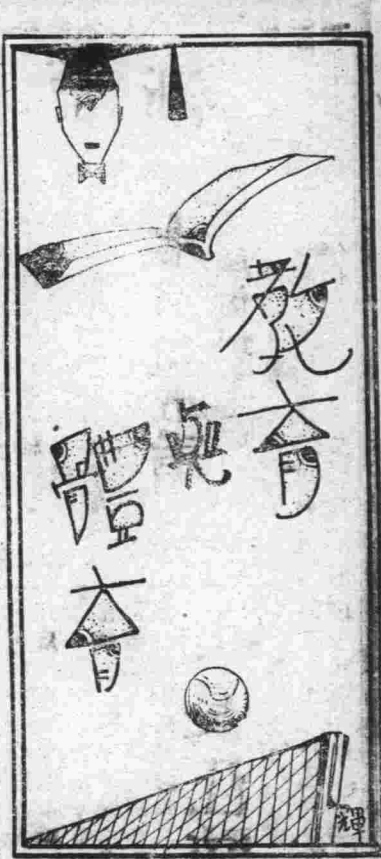 教育
與
體育
輝